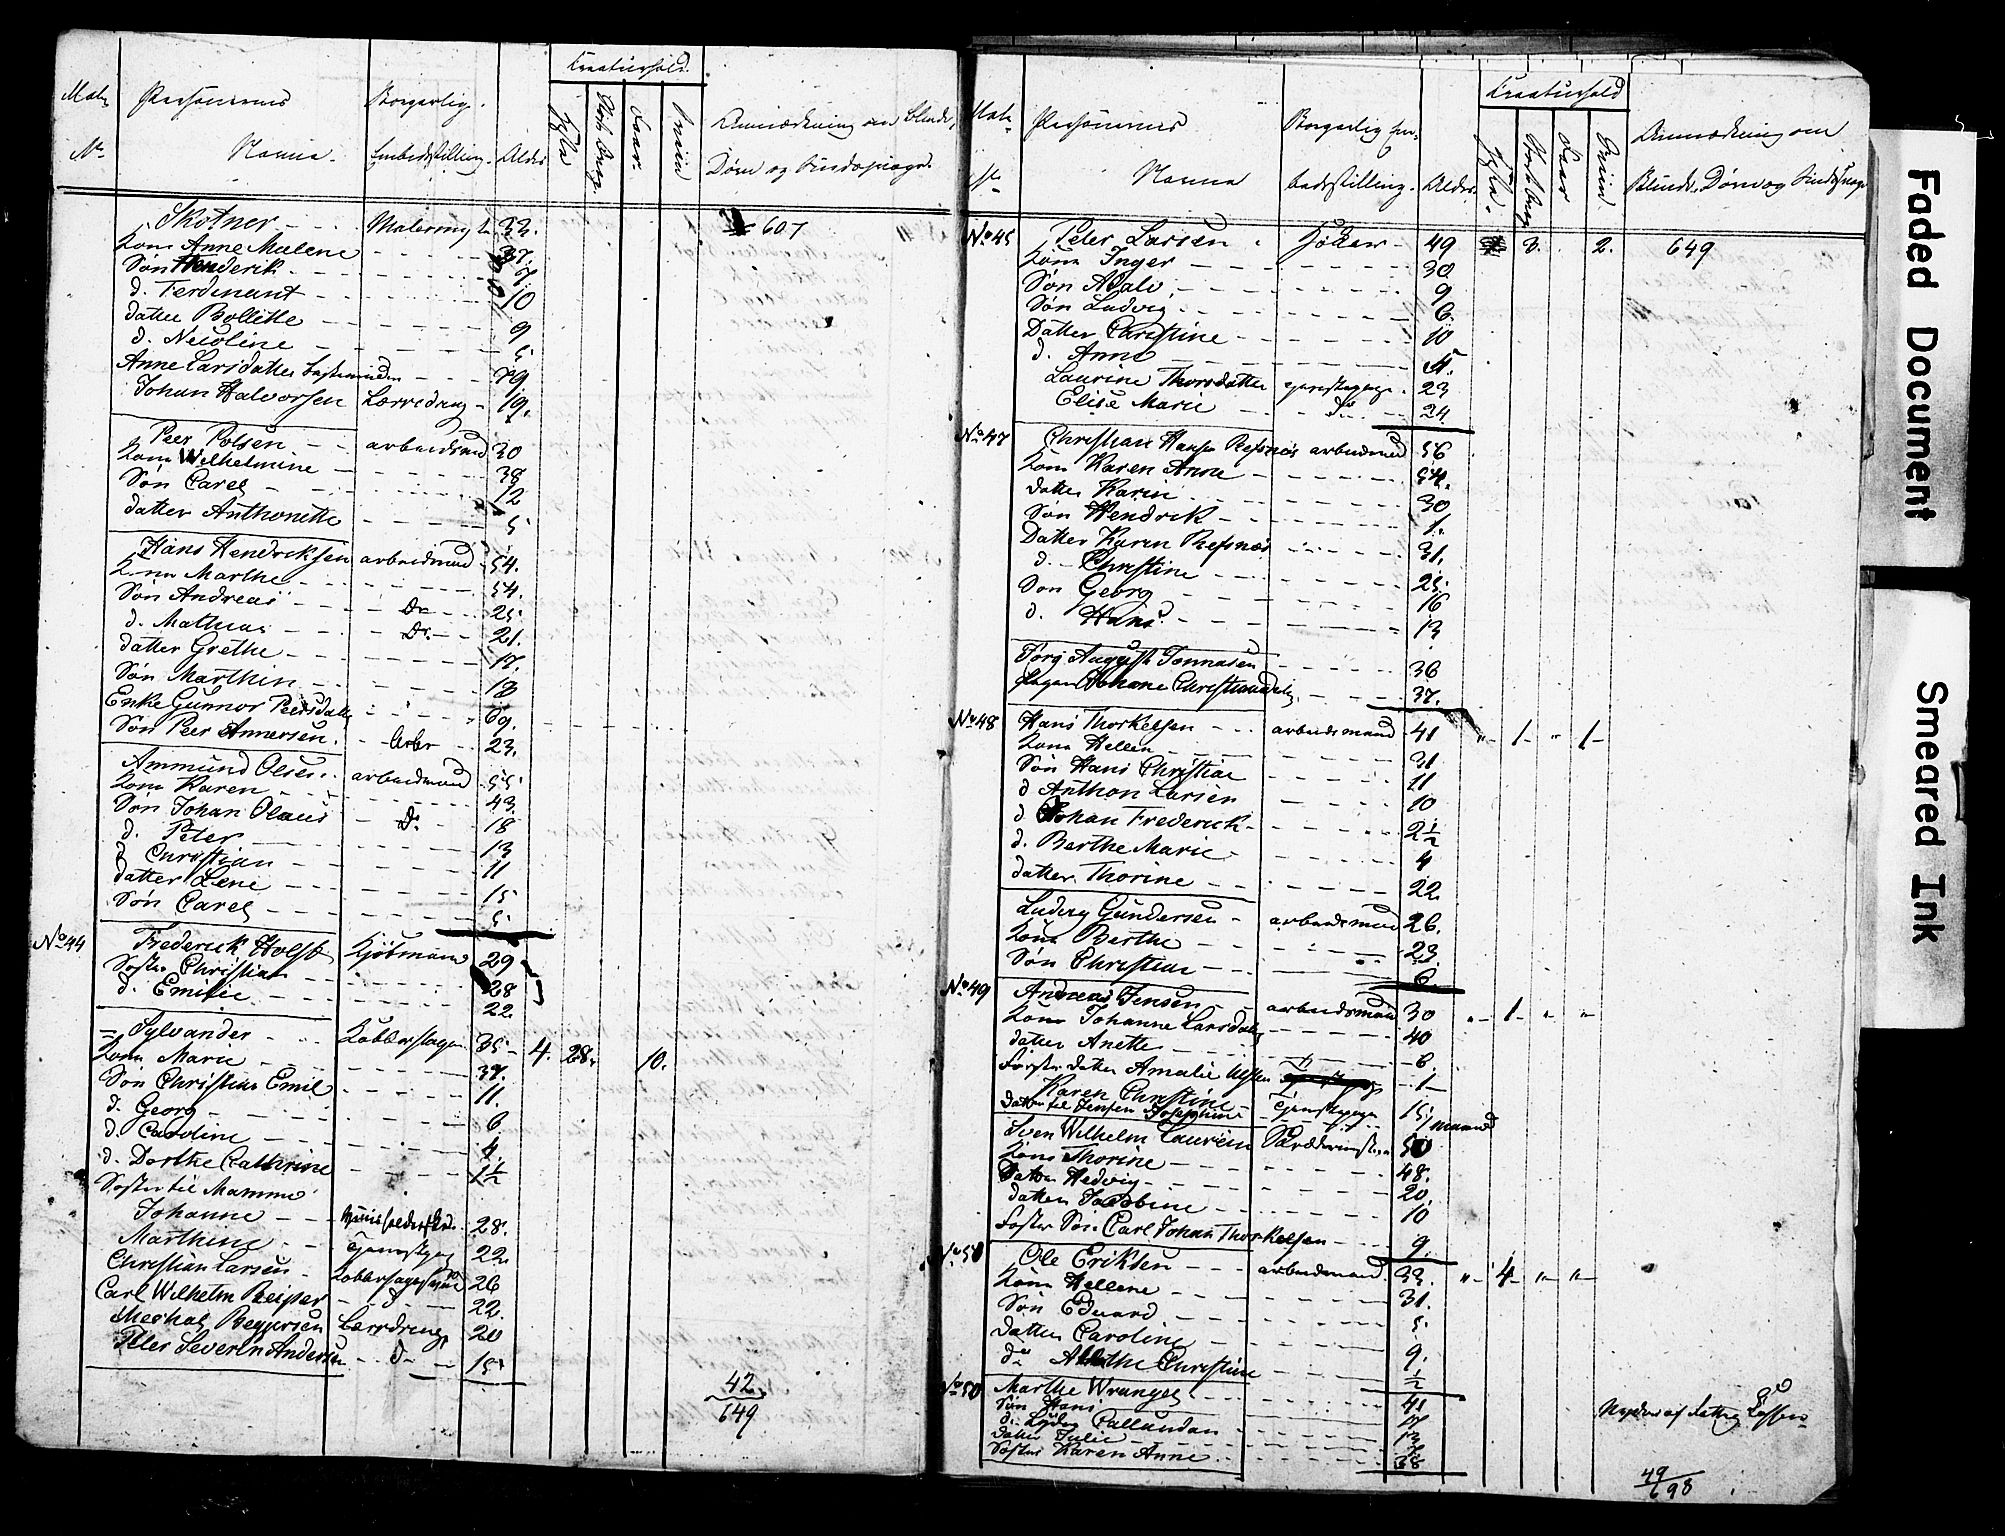 Matr
No
Personernes
Navne.
Borgerlig
Embedstilling.
Alder
Kreaturhold.
Heste
Faar.
Sviin
Anmærkning om blinde,
Døve og Sindssvage.
Skotner - - 33.
Kone Anne Malene - - - 37.
Søn Henderik - - - 7
d. Ferdinant - - - 10
datter Bollitte - - - 9
d. Nicoline - - - 5
Anne Larsdatter - - 79.
Johan Halvorsen Læredreng - 19.
607
Peer Polsen - - arbeidsmd 30
Kone Wilhelmine - - - 38
Søn Carel - - - 12
datter Anthonette - - - 5
Hans Hendriksen arbeidmand 54.
Kone Marthe - - - 54.
Søn Andreas - - Do - 25
d. Mathias - - Do - 21.
datter Grethe - - - 17.
Søn Marthin - - - 13
Enke Gunnor Peersdatter - - 69.
Søn Peer Annersen. - Arbr - 23.
Ammund Olsen - arbeidmand 55
Kone Karen - - - 43.
Søn Johan Olaus - Do - 18
d. Peter - - - 13
d. Christian - - - 11
datter Lene - - - 15
Søn Carel - - - 5
No 44 Frederick Holst Kjøbmand 29
Søster Christian - - - 28
d. Emilie - - - 22.
= Sylvander - - Kobberslager 35 - 4. 28. 10.
Kone Marie - - - 37.
Søn Christian Emil - - - 11.
d. Georg - - - 6
d. Caroline - - - 4.
d. Dorthe Cathrine - - - 1½
Søster til Mannen
Johanne - - 28.
Marthine - - 22
Christian Larsen - 26
Carl Wilhelm - d - 22.
Læredreng 20
Peter Severin Andersen - d - 15
42
649
Matr
No
Personernes
Navne
Borgerlig Em-
bedsstilling.
Alder.
Kreaturhold
Heste.
Faar
Sviin
Anmærkning om
Blinde, Døve og Sindssvage
No 45 Peter Larsen - 49 3. 2. 649
Kone Inger - - - 30
Søn - - - 9
Søn Ludvig - - - 6.
Datter Christine - - - 10
d. Anne - - - 4.
Laurine Thorsdatter 23
Elise Marie - - Do - 24
No 47 Christian Hansen Refsnæs arbeidmd 56
Kone Karen Anne - - 54.
datter Karin - - - 30
Søn Hendrik - - - 1.
Datter Karen Refsnæs - - 31.
d. - Christine - - - 25.
Søn Georg - - - 16
d. Hans - - - 13
August Tonnasen - - - 36
37.
No 48 Hans Thorkelsen - - arbeidsmand 41 " - 1 - " 1 -
Kone Hellen - - - 31
Søn Hans Christian - - - 11
d Anthon Larsen - - - 10
d Johan Frederick - - - 2½
d. Berthe Marie - - - 4
datter Thorine - - - 22
Ludvig Gundersen - arbeidsmand 26.
Kone Berthe - - - 23.
Søn Christian - - - 6.
No 49 Andreas Jensen - arbeidsmand 30 " - 1 - " - " -
Kone Johanne Larsdatter - 40
datter Anette - - - 6.
datter Amalie - 1 -
Karen Christine - 15
datter til Jensen Josephine - maaned
Sven Wilhelm 50
Kone Thorine - - - 48.
Datter Hedvig - - - 20.
datter Jacobine - - - 10
foster Søn Carl Johan Thorkelsen - - 9.
No 50 Ole Eriksen - - arbeidsmand. 33. " - 4 - " - " -
Kone Hellene - - - 31.
Søn Eduard - - - 5.
datter Caroline - - - 9.
Christine - ½
No 50 Marthe Wrangel - - - 41
Søn Hans - - - 17
d. Pallundan - - - 13
datter Julie - - -
Søster Karen Anne - - - 38
49
698
Faded Document
Smeared Ink